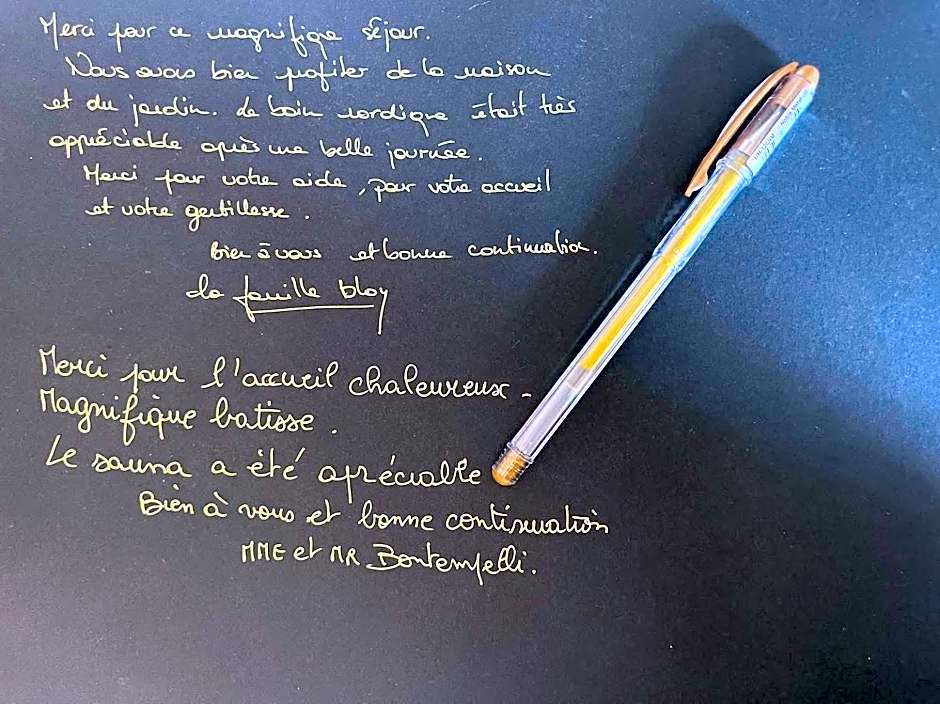 Merci pour ce magnifique séjour.
Nous avons bien profiter de la maison
et du jardin. Le bain nordique était très
appréciable après une belle journée.
Merci pour votre aide, pour votre accueil
et votre gentillesse.
Bien à vous et bonne continuation.
La famille bloy
Merci pour l'accueil chaleureux.
Magnifique batisse.
Le sauna a été apréciable
Bien à vous et bonne continuation
MME et MR Bontempelli.